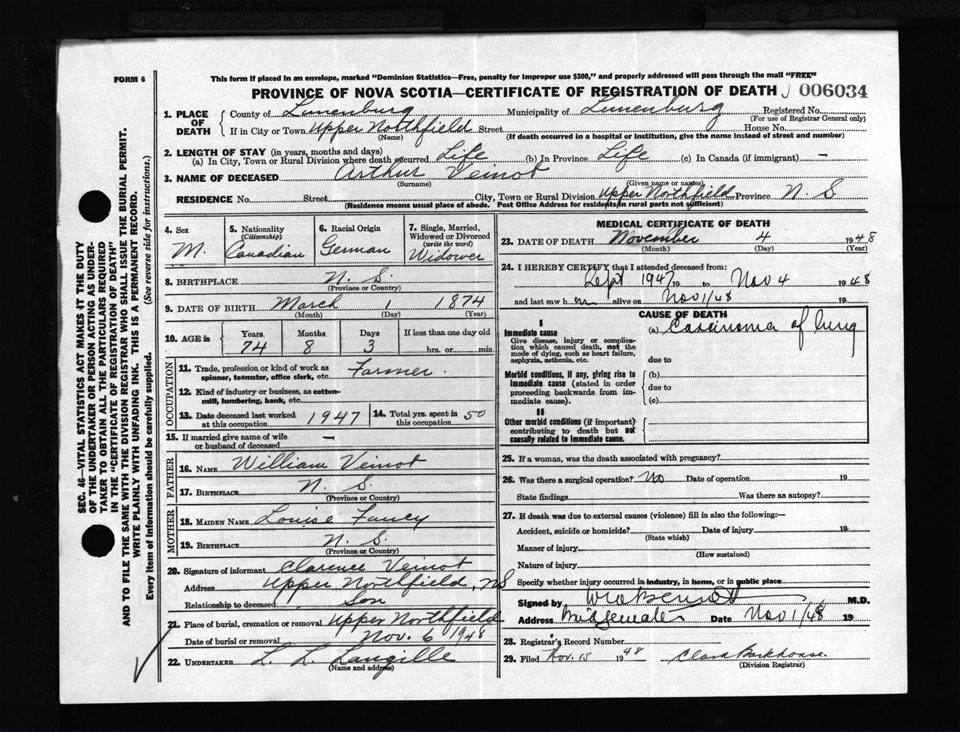 FORM 6
This form if placed in an envelope, marked "Dominion Statistics—Free, penalty for improper use $300," and properly addressed will pass through the mail "FREE"
PROVINCE OF NOVA SCOTIA—CERTIFICATE OF REGISTRATION OF DEATH J 006034
1. PLACE OF DEATH
County of Lunenburg Municipality of Lunenburg Registered No.
(For use of Registrar General only)
If in City or Town Upper Northfield Street House No.
(Name) (If death occurred in a hospital or institution, give the name instead of street and number)
2. LENGTH OF STAY (in years, months and days)
(a) In City, Town or Rural Division where death occurred Life (b) In Province Life (c) In Canada (if immigrant) —
3. NAME OF DECEASED Arthur Veinot
(Surname) (Given name or names)
RESIDENCE No. Street City, Town or Rural Division Upper Northfield Province N. S
(Residence means usual place of abode. Post Office Address for residents in rural parts not sufficient)
4. Sex M.
5. Nationality (Citizenship) Canadian
6. Racial Origin German
7. Single, Married, Widowed or Divorced (write the word) Widower
8. BIRTHPLACE N. S.
(Province or Country)
9. DATE OF BIRTH March 1 1874
(Month) (Day) (Year)
10. AGE in Years Months Days If less than one day old
74 8 3 hrs. or min.
OCCUPATION
11. Trade, profession or kind of work as spinner, teamster, office clerk, etc. Farmer.
12. Kind of industry or business, as cotton-mill, lumbering, bank, etc.
13. Date deceased last worked at this occupation 1947
14. Total yrs. spent in this occupation 50
15. If married give name of wife or husband of deceased —
FATHER
16. NAME William Veinot
17. BIRTHPLACE N. S.
(Province or Country)
MOTHER
18. MAIDEN NAME Louise Fancy
19. BIRTHPLACE N. S.
(Province or Country)
20. Signature of informant Clarence Veinot
Address Upper Northfield, NS
Relationship to deceased Son
21. Place of burial, cremation or removal Upper Northfield
Date of burial or removal Nov. 6 1948
22. UNDERTAKER L. L. Langille
(Name and address)
MEDICAL CERTIFICATE OF DEATH
23. DATE OF DEATH November 4 1948
(Month) (Day) (Year)
24. I HEREBY CERTIFY that I attended deceased from:
Sept 1947 19 to Nov 4 1948
and last saw him alive on Nov 1/48 19
CAUSE OF DEATH
I
Immediate cause (a) Carcinoma of lung
Give disease, injury or complication which caused death, not the mode of dying, such as heart failure, asphyxia, asthenia, etc.
due to
Morbid conditions, if any, giving rise to immediate cause (stated in order proceeding backwards from immediate cause).
(b)
due to
(c)
II
Other morbid conditions (if important) contributing to death but not causally related to immediate cause.
25. If a woman, was the death associated with pregnancy?
26. Was there a surgical operation? No Date of operation 19
State findings Was there an autopsy?
27. If death was due to external causes (violence) fill in also the following:—
Accident, suicide or homicide? Date of injury 19
(State which)
Manner of injury
(How sustained)
Nature of injury
Specify whether injury occurred in industry, in home, or in public place
Signed by M.D.
Address Bridgewater Date Nov 1/48 19
28. Registrar's Record Number
29. Filed Nov. 15 1948 Clara Barkhouse.
(Division Registrar)
SEC. 46—VITAL STATISTICS ACT MAKES IT THE DUTY
OF THE UNDERTAKER OR PERSON ACTING AS UNDER-
TAKER TO OBTAIN ALL THE PARTICULARS REQUIRED
IN THE "CERTIFICATE OF REGISTRATION OF DEATH"
AND TO FILE THE SAME WITH THE DIVISION REGISTRAR WHO SHALL ISSUE THE BURIAL PERMIT.
WRITE PLAINLY WITH UNFADING INK. THIS IS A PERMANENT RECORD.
Every item of information should be carefully supplied. (See reverse side for instructions.)